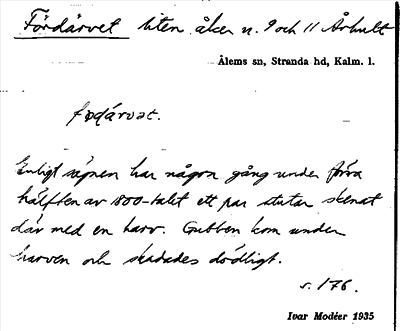 Fördärvet liten åker n. 9 och 11 Århult
Ålems sn, Stranda hd, Kalm. l.
fødärvət.
Enligt sägnen har någon gång under förra
hälften av 1800-talet ett par stutar skenat
där med en harv. Gubben kom under
harven och skadades dödligt.
s. 176.
Ivar Modéer 1935